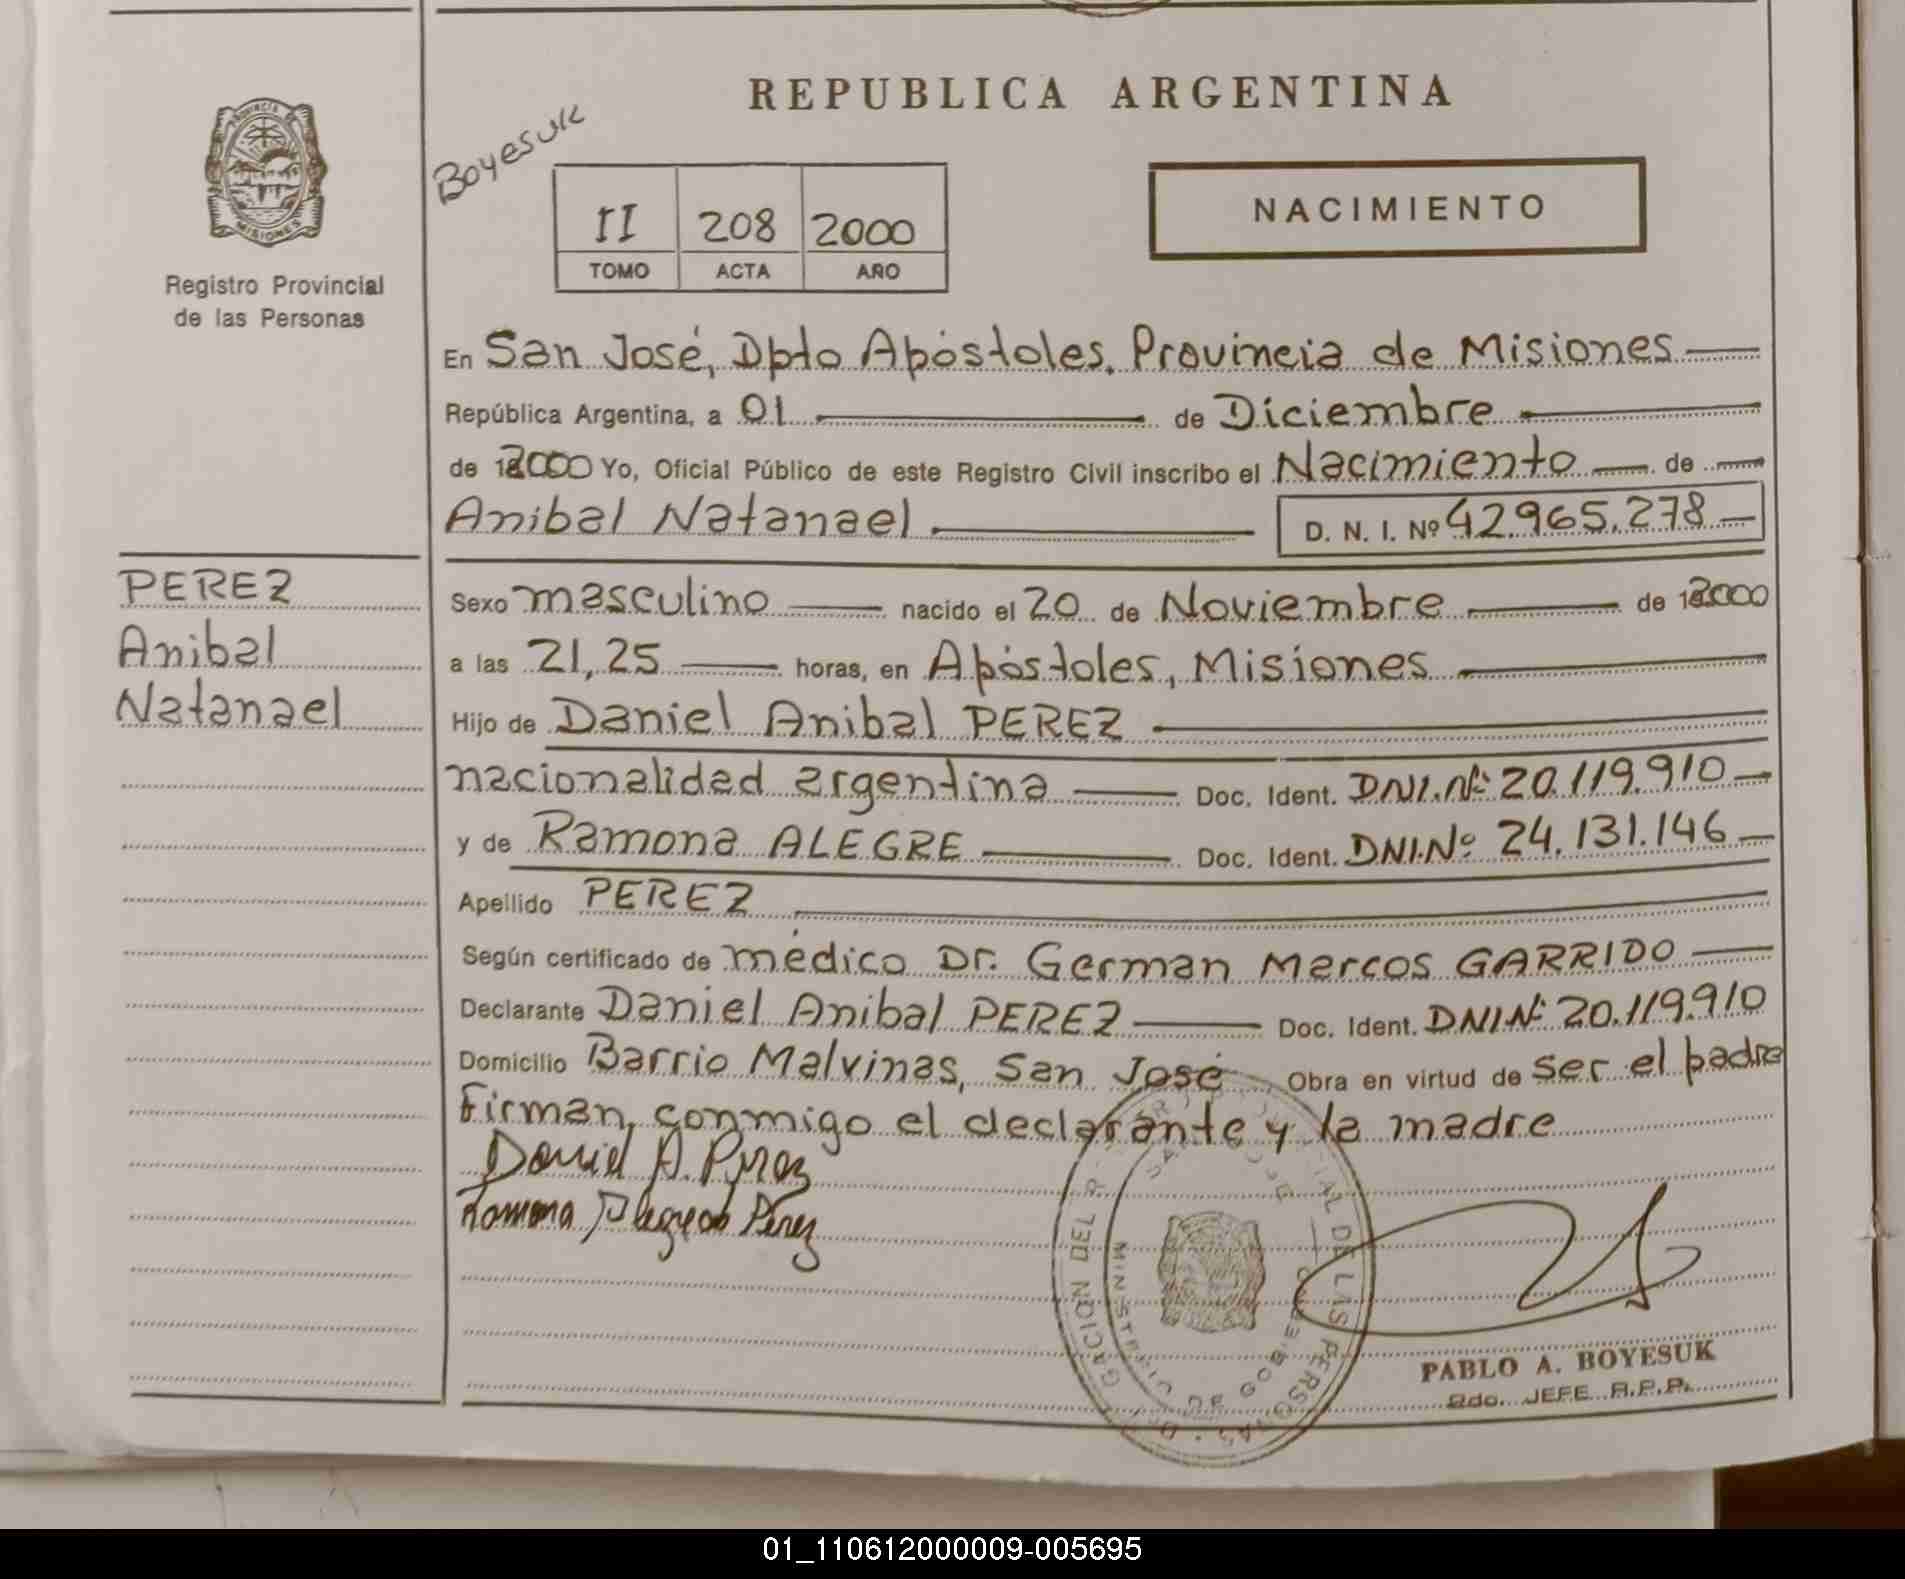 REPUBLICA ARGENTINA
Boyesuk
PROVINCIA
MISIONES
Registro Provincial
de las Personas
II 208 2000
TOMO ACTA AÑO
NACIMIENTO
En San José, Dpto Apóstoles, Provincia de Misiones
República Argentina, a 01 de Diciembre
de 2000 Yo, Oficial Público de este Registro Civil inscribo el Nacimiento de
Anibal Natanael D. N. I. Nº 42.965.278
PEREZ
Anibal
Natanael
Sexo masculino nacido el 20 de Noviembre de 2000
a las 21,25 horas, en Apóstoles, Misiones
Hijo de Daniel Anibal PEREZ
nacionalidad argentina Doc. Ident. DNI.Nº 20.119.910
y de Ramona ALEGRE Doc. Ident. DNI.Nº 24.131.146
Apellido PEREZ
Según certificado de médico Dr. German Marcos GARRIDO
Declarante Daniel Anibal PEREZ Doc. Ident. DNI Nº 20.119.910
Domicilio Barrio Malvinas, San José Obra en virtud de ser el padre
Firman conmigo el declarante y la madre
Daniel A. Perez
Ramona Perez
SAN JOSE
DE LAS PERSONAS
MINISTERIO DE GOBIERNO
PABLO A. BOYESUK
2do. JEFE R.P.P.
01_110612000009-005695